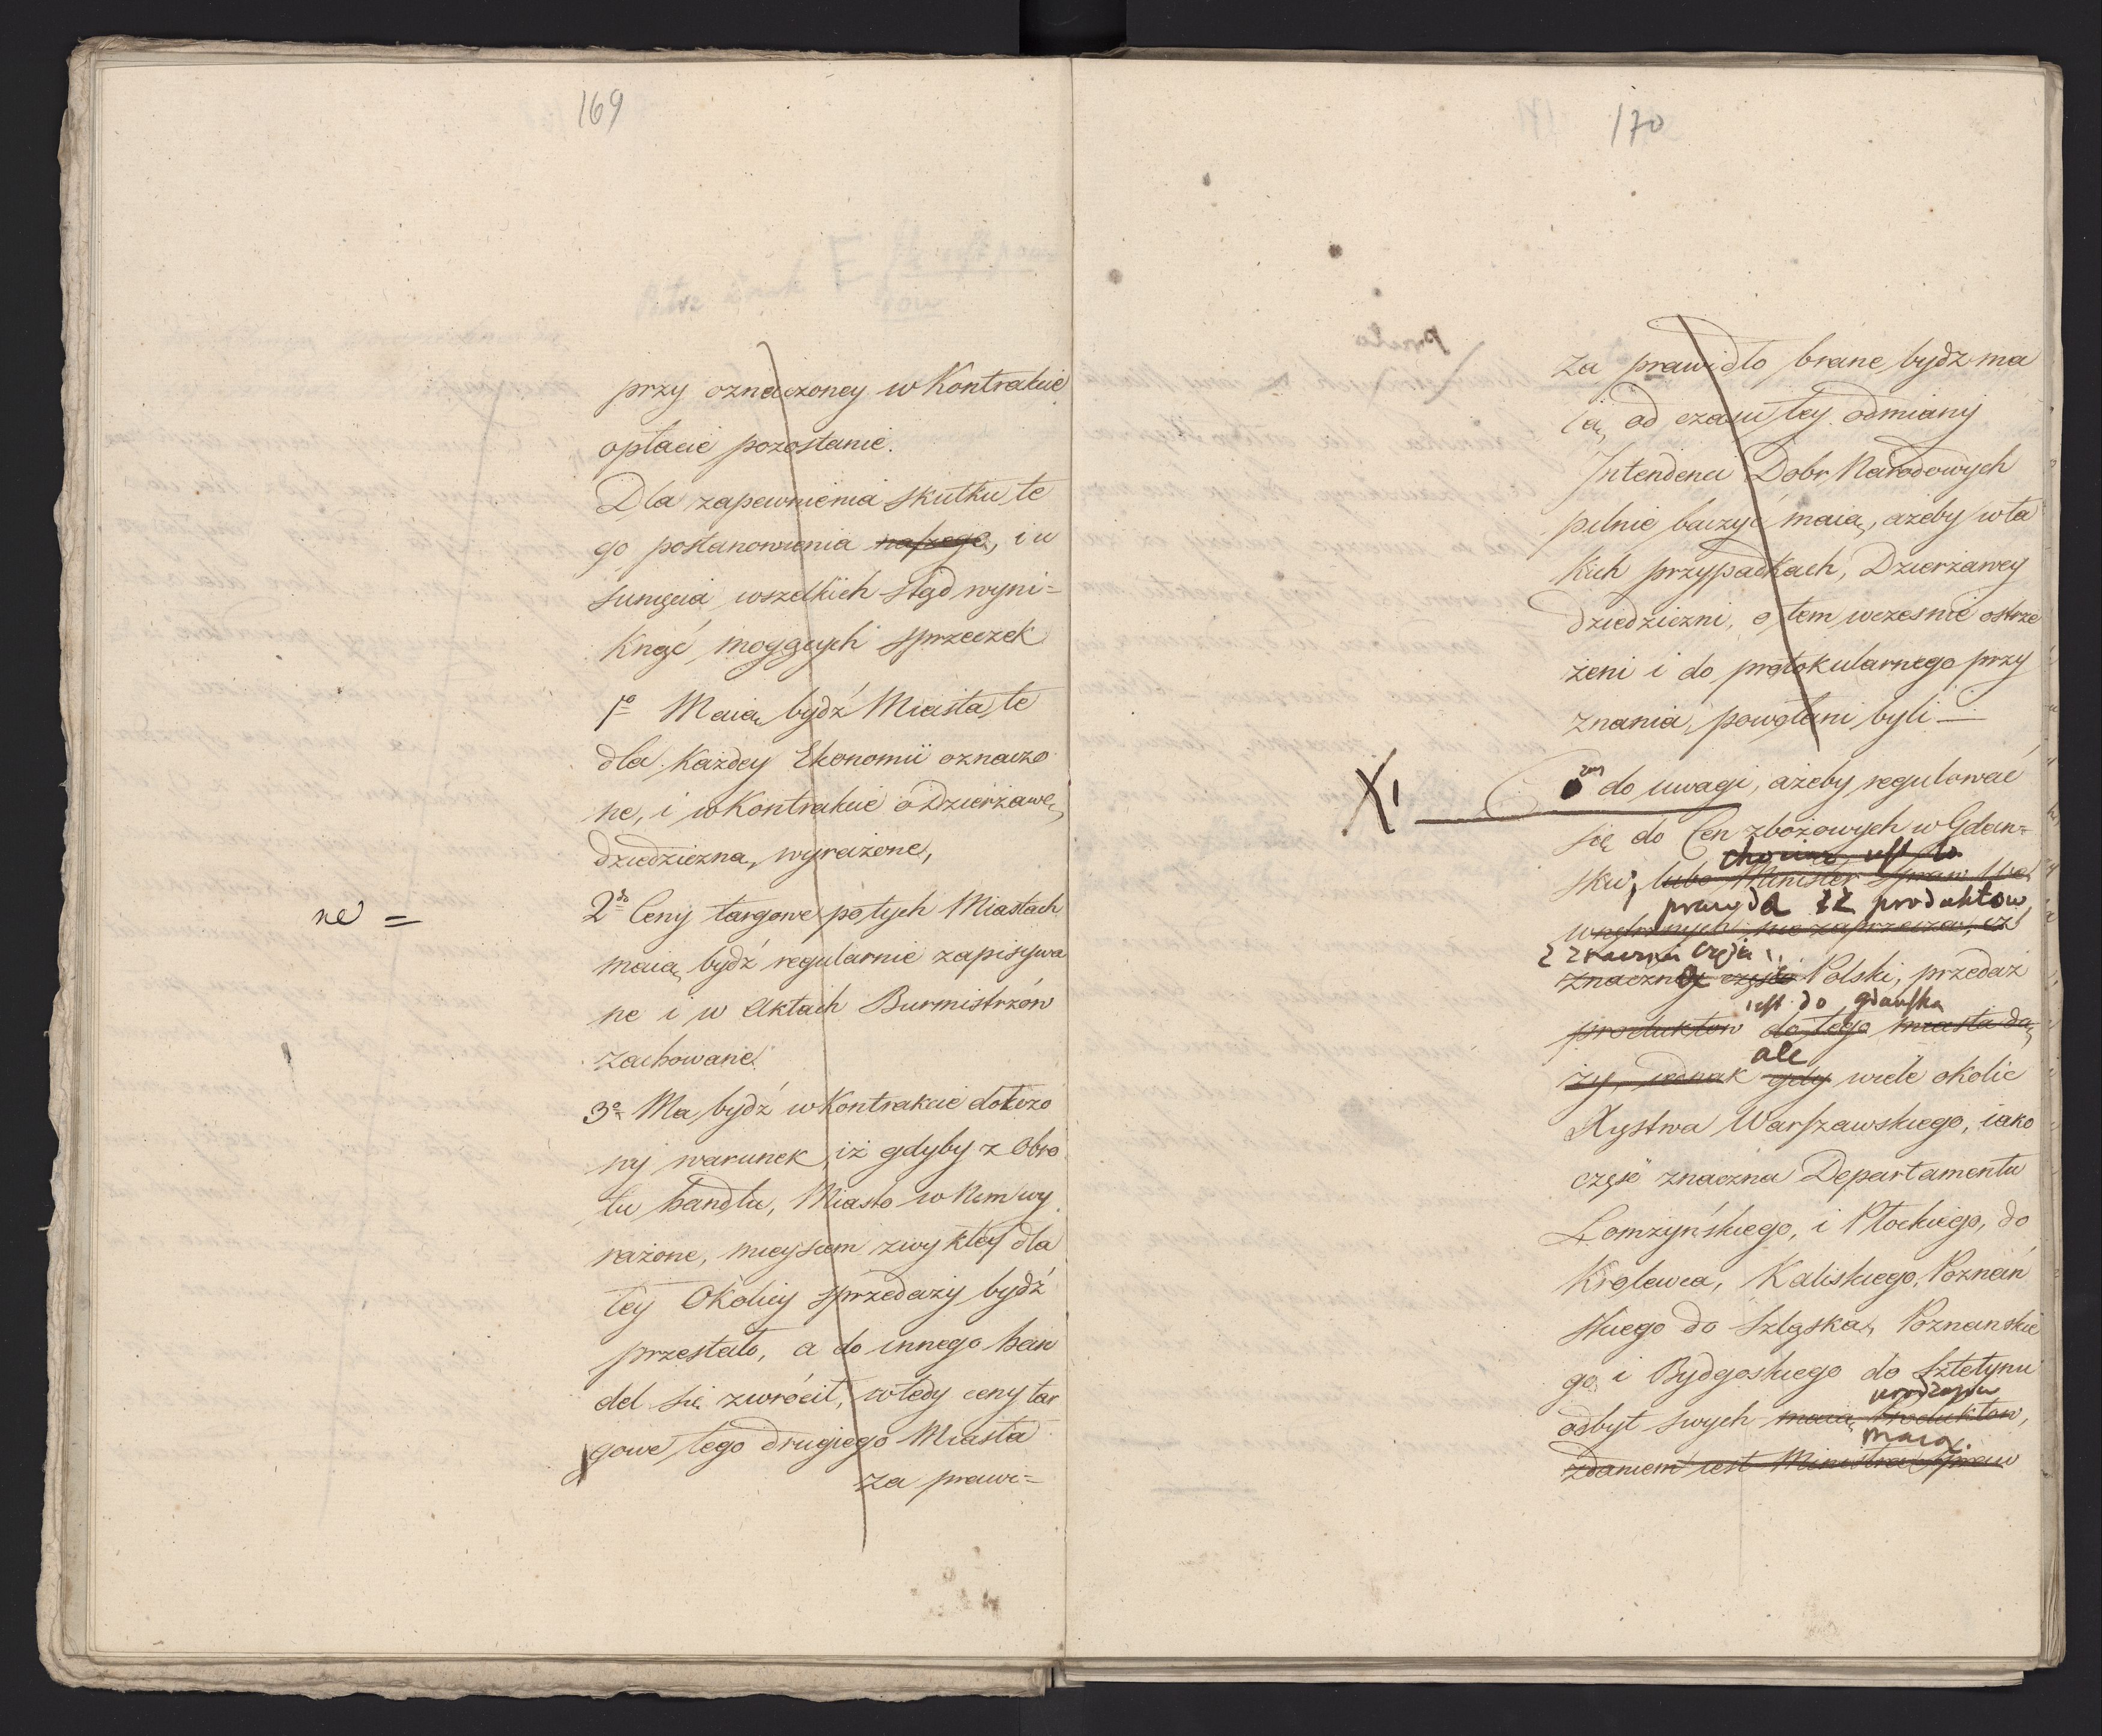 169
przy oznaczoney w Kontrakcie
opłacie pozostanie.
Dla zapewnienia skutku te
go postanowienia naszego, i u
sunięcia wszelkich stąd wyni=
knąć mogących sprzeczek
1o Maią bydź Miasta te
dla każdey Ekonomii oznaczo
ne, i w Kontrakcie o Dzierżawę
dziedziczną wyrażone,
ne =
2do Ceny targowe po tych Miastach
maią bydź regularnie zapisywa
ne i w Aktach Burmistrzów
zachowane.
3o Ma bydź w Kontrakcie dołożo
ny warunek, iż gdyby z Obro
tu handlu, Miasto w Nim wy
rażone, mieyscem zwykłey dla
tey Okolicy sprzedaży bydź
przestało, a do innego han
del się zwrócił, wtedy ceny tar
gowe tego drugiego Miasta
za prawi=
170
za prawidło brane bydź ma
ią, od czasu tey odmiany
Intendenci Dobr Narodowych
pilnie baczyć maią, ażeby w ta
kich przypadkach, Dzierżawcy
dziedziczni, o tem wcześnie ostrze
żeni i do protokularnego przy
znania, powołani byli —
XI
do uwagi, ażeby regulować
się do Cen zbożowych w Gdań=
chociaż iest to
sku, lubo Minister Spraw We
prawda iż produktow
wnętrznych nie zaprzecza, iż
z znaczney części
znaczney części Polski, przedaż
iest do gdańska
produktow do tego miasta dą
ale
ży, iednak gdy wiele okolic
Xięstwa Warszawskiego, iako
część znaczna Departamentu
Łomżyńskiego, i Płockiego, do
Krolewca, Kaliskiego, Poznań
skiego do Szląska, Poznanskie
go i Bydgoskiego do Sztetynu
urodzajow
odbyt swych maią produktow,
maią.
zdaniem iest Ministra Spraw